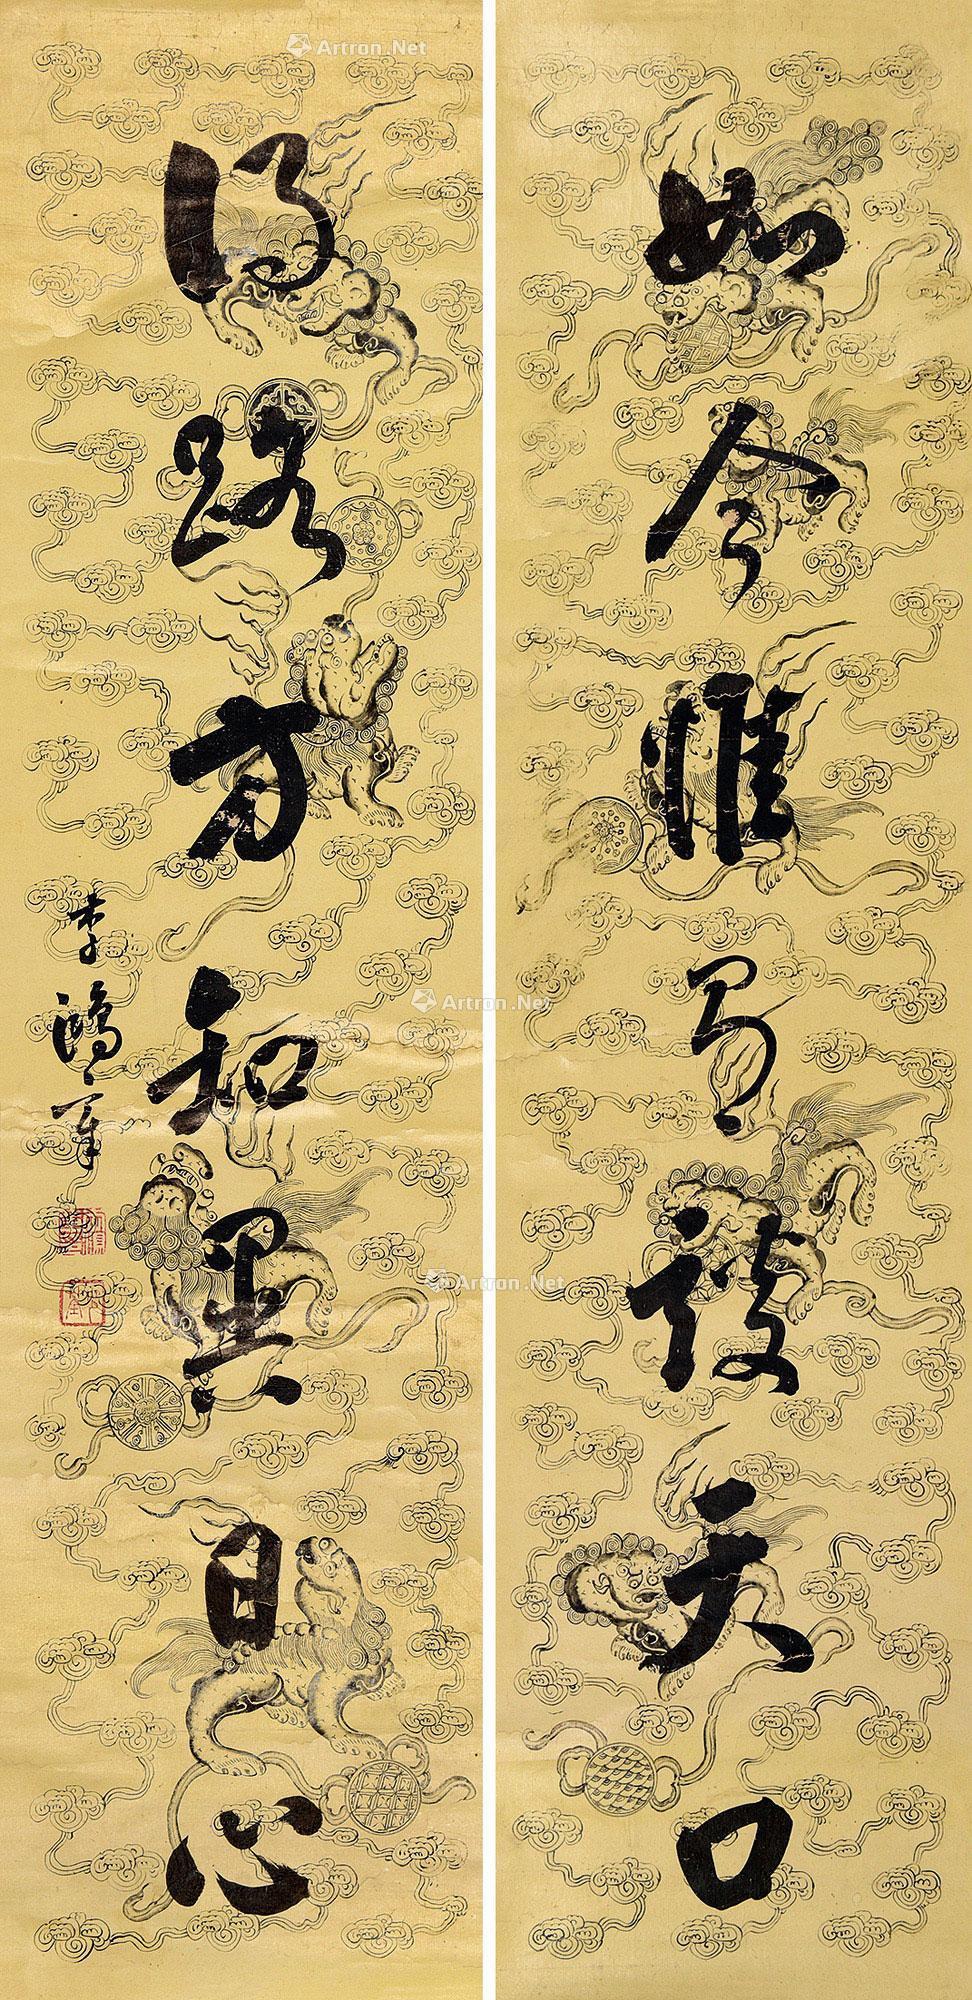 如今惟談天口
得路方知異日心
李鴻章
Artron.Net
Artron.Net
Artron.Net